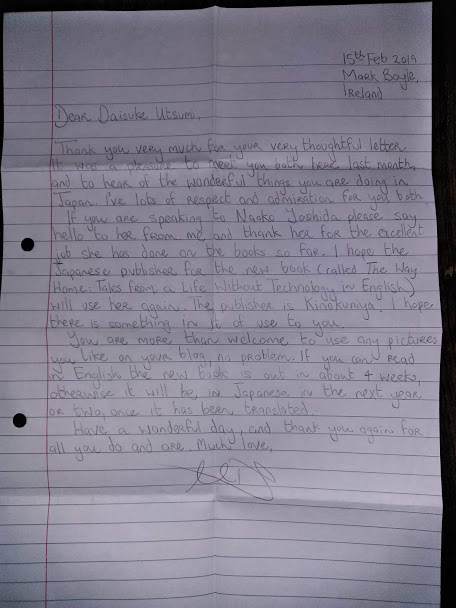 15th Feb 2019
Mark Boyle,
Ireland
Dear Daisuke Utsumi,
Thank you very much for your very thoughtful letter.
It was a pleasure to meet you both here last month,
and to hear of the wonderful things you are doing in
Japan. I've lots of respect and admiration for you both.
If you are speaking to Naoko Yoshida please say
hello to her from me and thank her for the excellent
job she has done on the books so far. I hope the
Japanese publisher for the new book (called The Way
Home: Tales from a Life Without Technology in English)
will use her again. The publisher is Kinokuniya. I hope
there is something in it of use to you.
You are more than welcome to use any pictures
you like on your blog, no problem. If you can read
in English the new book is out in about 4 weeks,
otherwise it will be in Japanese in the next year
or two, once it has been translated.
Have a wonderful day, and thank you again for
all you do and are. Much love,